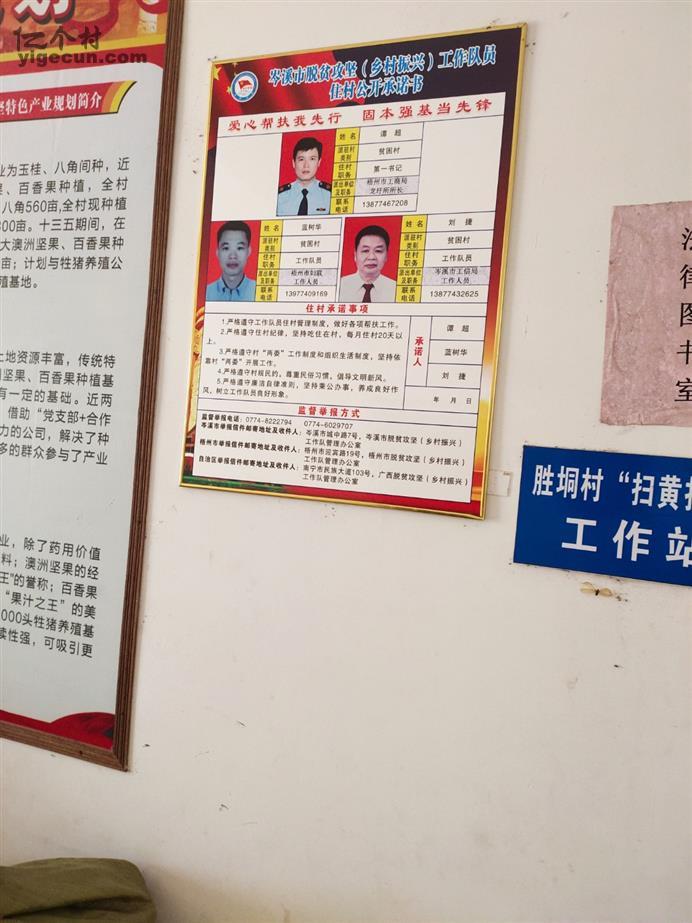 亿个村
yigecun.com
坚特色产业规划简介
业为玉桂、八角间种，近
果、百香果种植，全村
八角560亩,全村现种植
300亩。十三五期间，在
大澳洲坚果、百香果种
亩；计划与牲猪养殖公
殖基地。
土地资源丰富，传统特
坚果、百香果种植基
有一定的基础。近两
借助“党支部+合作
力的公司，解决了种
多的群众参与了产业
业，除了药用价值
料；澳洲坚果的经
王”的誉称；百香果
“果汁之王”的美
000头牲猪养殖基
续性强，可吸引更
岑溪市脱贫攻坚（乡村振兴）工作队员
住村公开承诺书
爱心帮扶我先行 固本强基当先锋
姓名 谭超
派驻村类别 贫困村
住村职务 第一书记
派出单位及职务 梧州市工商局龙圩所所长
联系电话 13877467208
姓名 蓝树华
派驻村类别 贫困村
住村职务 工作队员
派出单位及职务 梧州市妇联工作人员
联系电话 13977409169
姓名 刘捷
派驻村类别 贫困村
住村职务 工作队员
派出单位及职务 岑溪市工信局工作人员
联系电话 13877432625
住村承诺事项
1.严格遵守工作队员住村管理制度，做好各项帮扶工作。
2.严格遵守住村纪律，坚持吃住在村，每月住村20天以
上。
3.严格遵守村“两委”工作制度和组织生活制度，坚持依
靠村“两委”开展工作。
4.严格遵守村规民约，尊重民俗习惯，倡导文明新风。
5.严格遵守廉洁自律准则，坚持秉公办事，养成良好作
风，树立工作队员良好形象。
承诺人
谭超
蓝树华
刘捷
年 月 日
监督举报方式
监督举报电话：0774-8222794 0774-6029707
岑溪市举报信件邮寄地址及收件人：岑溪市城中路7号，岑溪市脱贫攻坚（乡村振兴）
工作队管理办公室
梧州市举报信件邮寄地址及收件人：梧州市迎宾路19号，梧州市脱贫攻坚（乡村振兴）
工作队管理办公室
自治区举报信件邮寄地址及收件人：南宁市民族大道103号，广西脱贫攻坚（乡村振兴）
工作队管理办公室
法律图书室
胜垌村“扫黄打
工作站